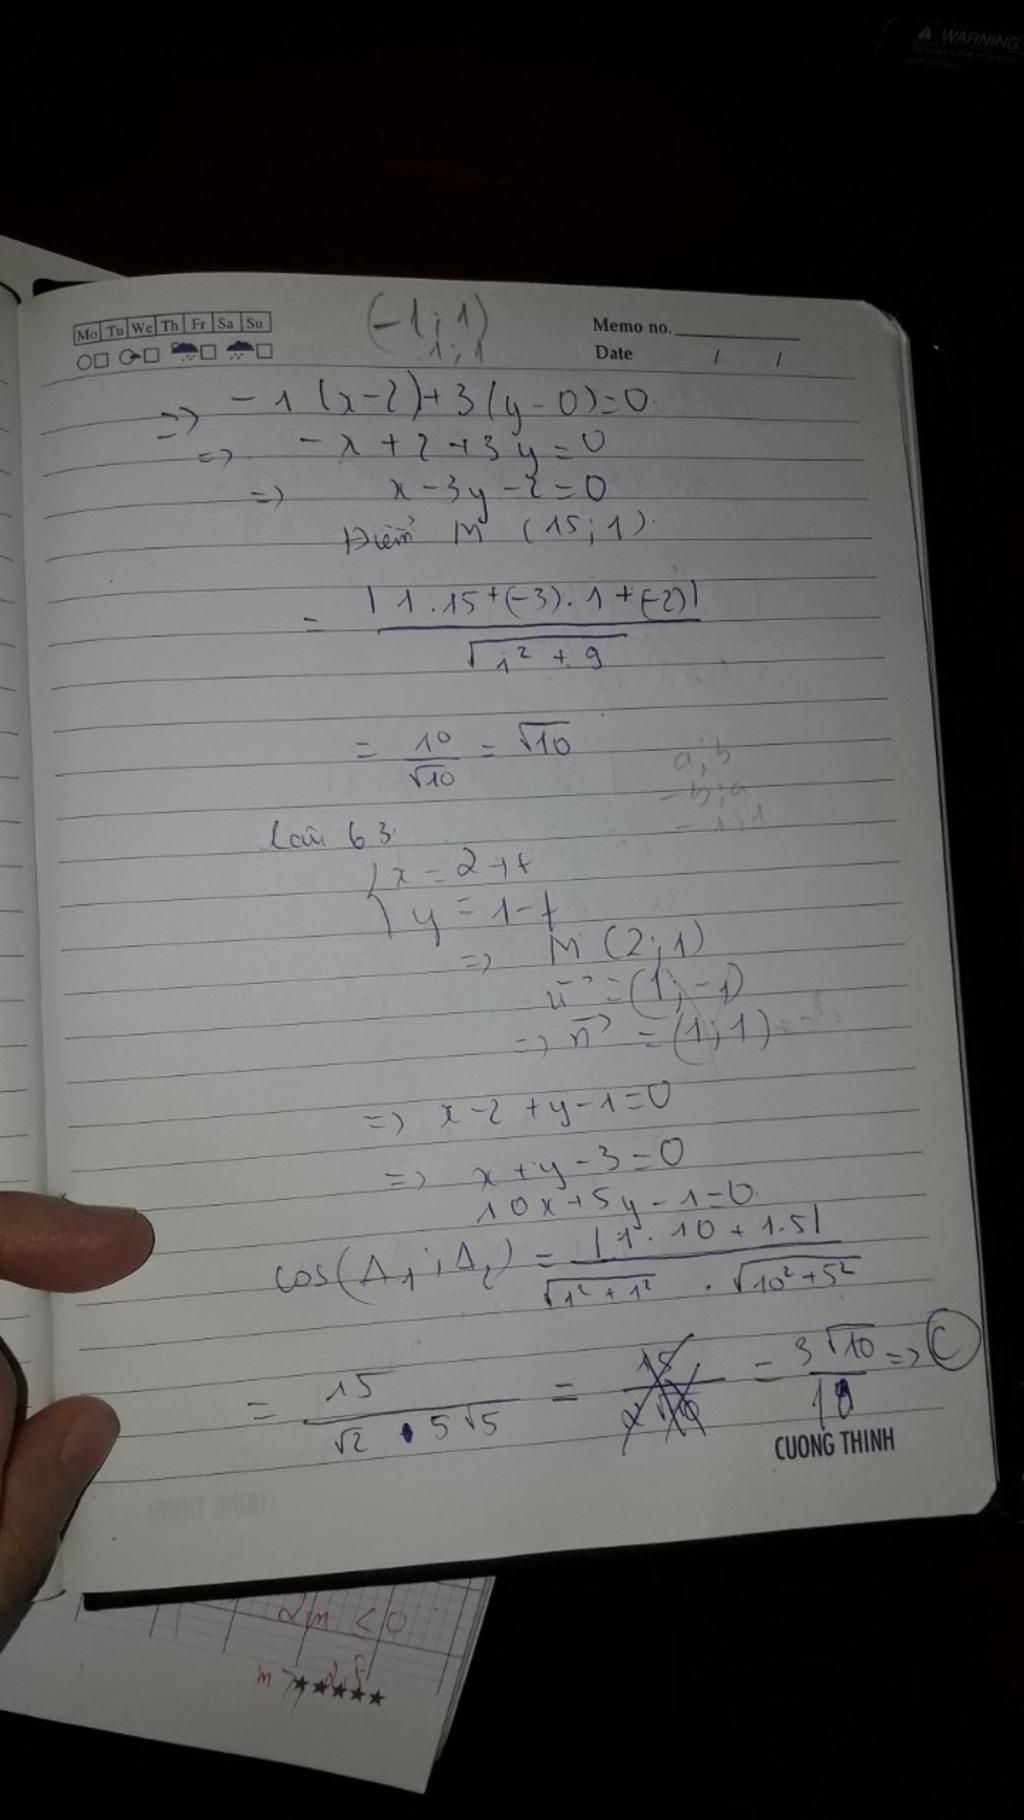 WARNING
Mo Tu We Th Fr Sa Su
(-1; 1)
1; 1
Memo no.
Date / /
=> -1(x-2)+3(y-0)=0
=> -x+2+3y=0
=> x-3y-2=0
Điểm M (15; 1).
= |1.15+(-3).1+(-2)| / √(1²+9)
= 10/√10 = √10
a; b
-b; a
-1; 1
Câu 63
{ x = 2+t
y = 1-t
=> M (2; 1)
u→ = (1; -1)
=> n→ = (1; 1)
=> x-2+y-1=0
=> x+y-3=0
10x+5y-1=0
cos(Δ1; Δ2) = |1.10+1.5| / √(1²+1²) . √(10²+5²)
= 15 / √2 . 5√5 = 3√10 / 10 => C
CUONG THINH
2m < 0